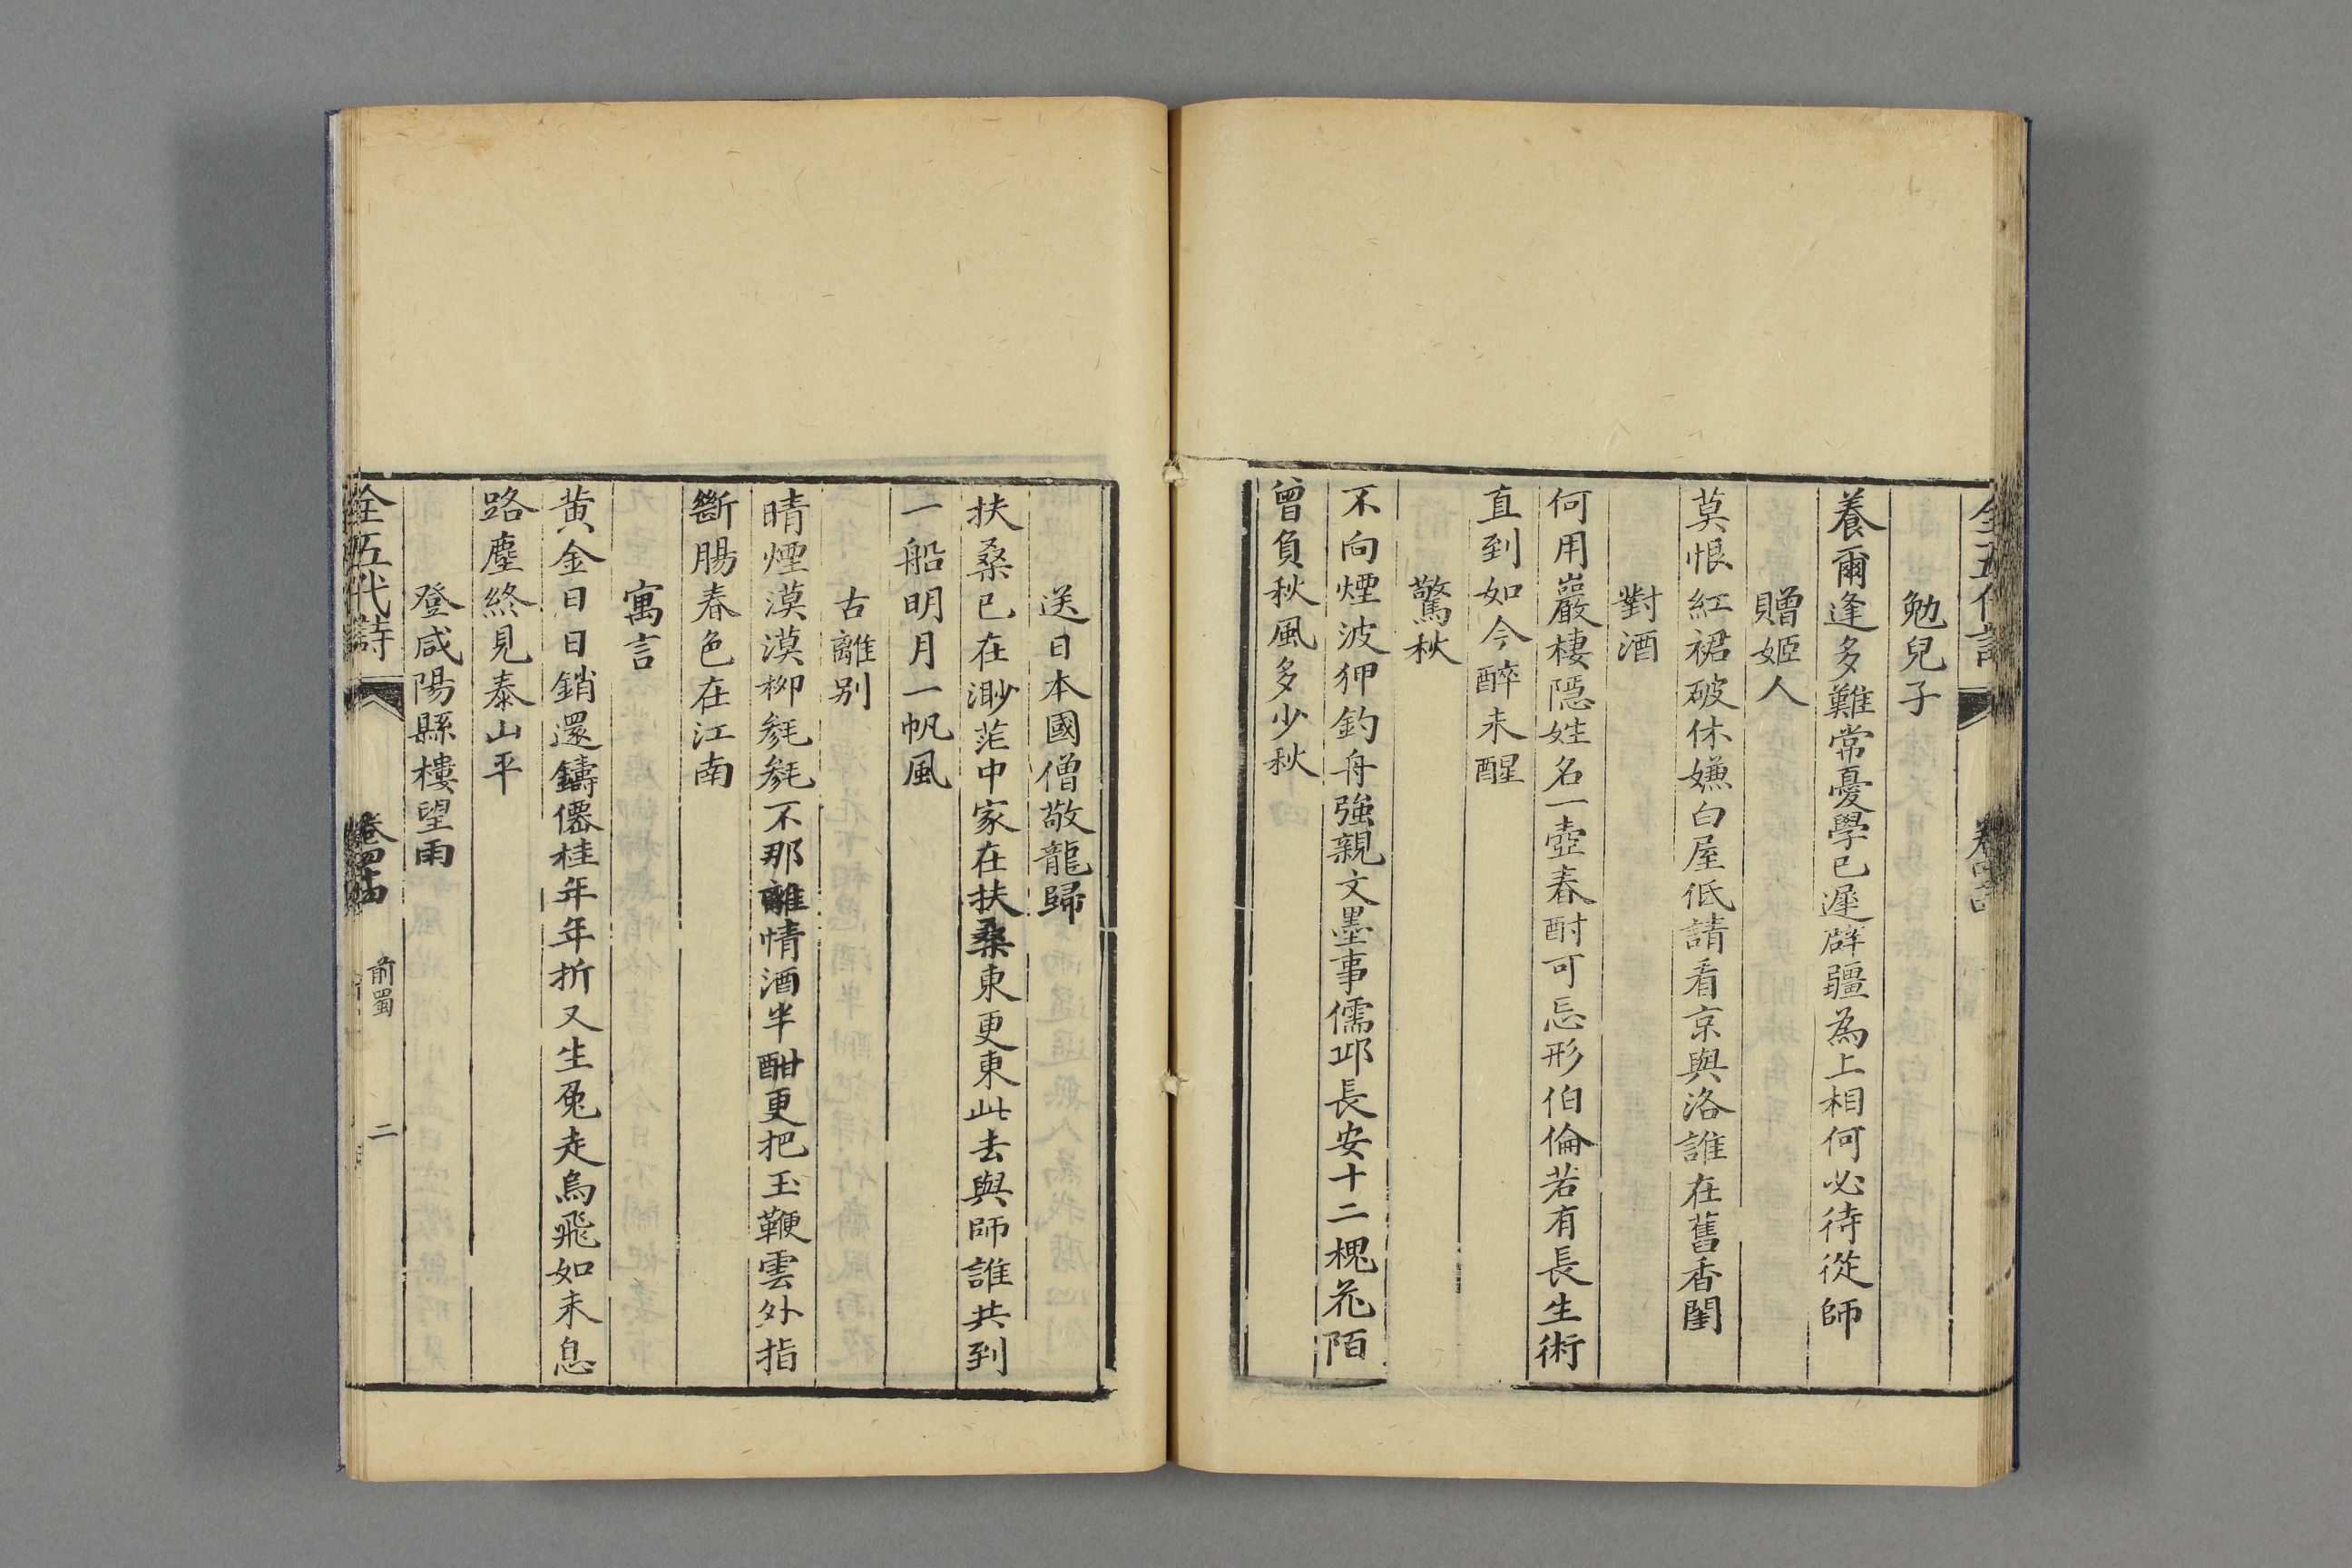 勉兒子
養爾逢多難常憂學已遲辟疆為上相何必待從師
贈姬人
莫恨紅裙破休嫌白屋低請看京與洛誰在舊香閨
對酒
何用巖棲隱姓名一壺春酎可忘形伯倫若有長生術
直到如今醉未醒
驚秋
不向煙波狎釣舟強親文墨事儒邱長安十二槐花陌
曾負秋風多少秋
送日本國僧敬龍歸
扶桑已在渺茫中家在扶桑東更東此去與師誰共到
一船明月一帆風
古離别
晴煙漠漠柳毿毿不那離情酒半酣更把玉鞭雲外指
斷腸春色在江南
寓言
黄金日日銷還鑄僊桂年年折又生兔走烏飛如未息
路塵終見泰山平
登咸陽縣樓望雨
全五代詩 卷四十 前蜀 二